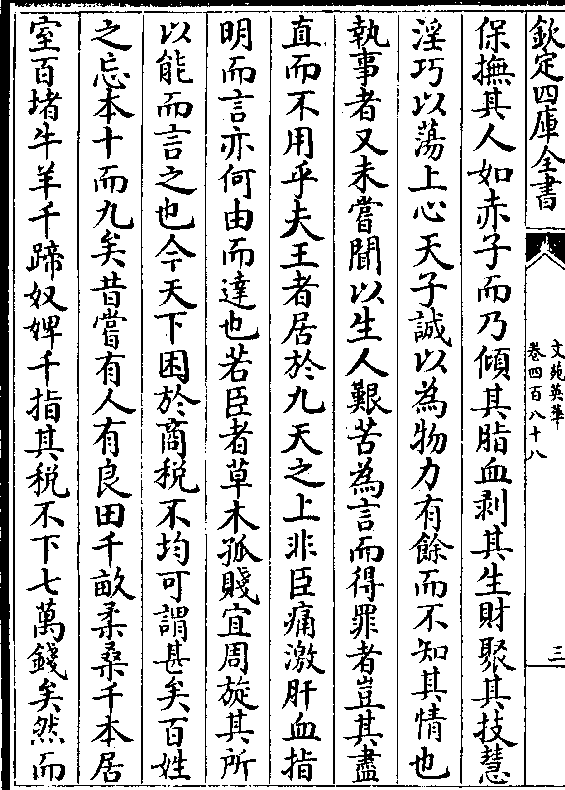 欽定四庫全書
文苑英華
卷四百八十八
三
保撫其人如赤子而乃傾其脂血剥其生財聚其技慧
淫巧以蕩上心天子誠以為物力有餘而不知其情也
執事者又未嘗聞以生人艱苦為言而得罪者豈其盡
直而不用乎夫王者居於九天之上非臣痛激肝血指
明而言亦何由而達也若臣者草木孤賤宜周旋其所
以能而言之也今天下困於商税不均可謂甚矣百姓
之忘本十而九矣昔嘗有人有良田千畝柔桑千本居
室百堵牛羊千蹄奴婢千指其税不下七萬錢矣然而